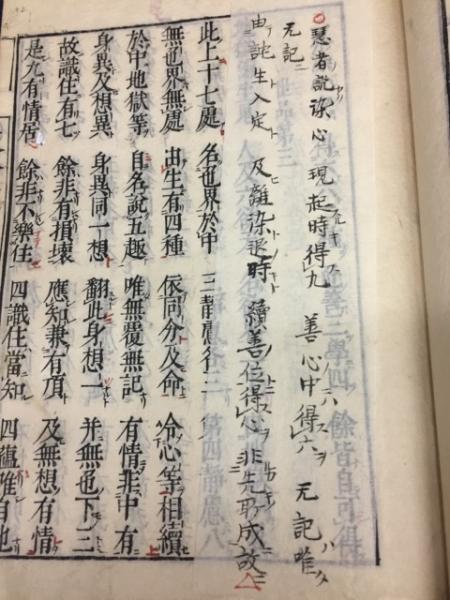 慧者說染心 現起時得九 善心中得六 无記唯
无記
由託生入定 及離染退時 續善位得心 非先所成故
此上十七處 名色界於中 三靜慮各三 第四靜慮八
無色界無處 由生有四種 依同分及命 令心等相續
於中地獄等 自名說五趣 唯無覆無記 有情非中有
身異及想異 身異同一想 翻此身想一 并無色下三
故識住有七 餘非有損壞 應知兼有頂 及無想有情
是九有情居 餘非不樂住 四識住當知 四蘊唯自地